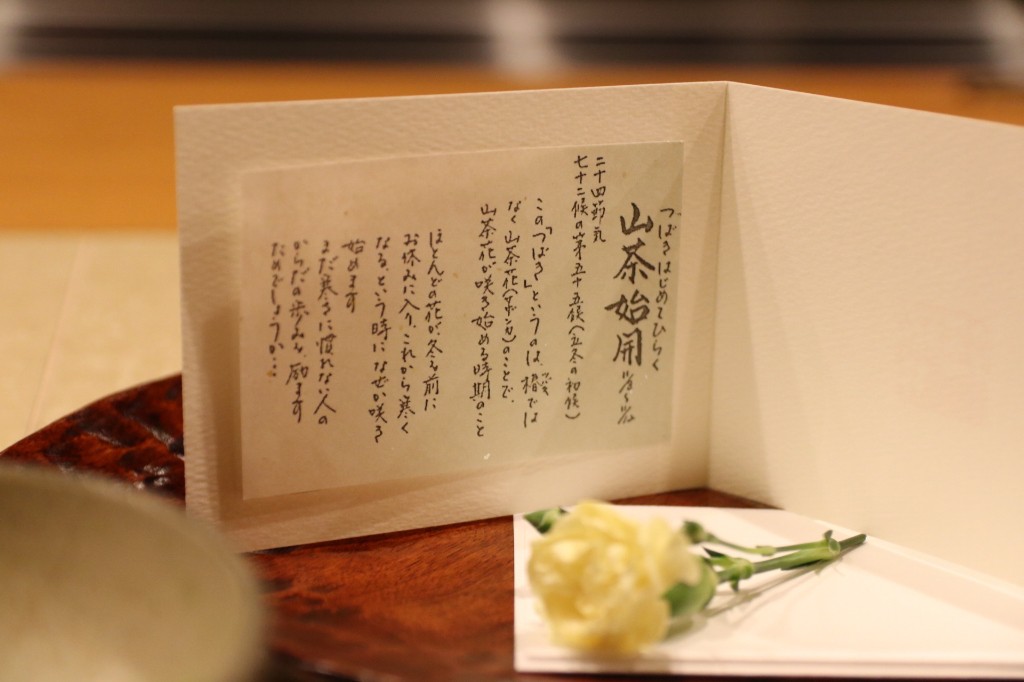 二十四節気
七十二候の第五十五候(立冬の初候)
つばきはじめてひらく
山茶始開
この「つばき」というのは、椿では
なく山茶花(サザンカ)のことで、
山茶花が咲き始める時期のこと
ほとんどの花が、冬を前に
お休みに入り、これから寒く
なる、という時になぜか咲き
始めます
まだ寒さに慣れない人の
からだの歩みを、励ます
ためでしょうか…